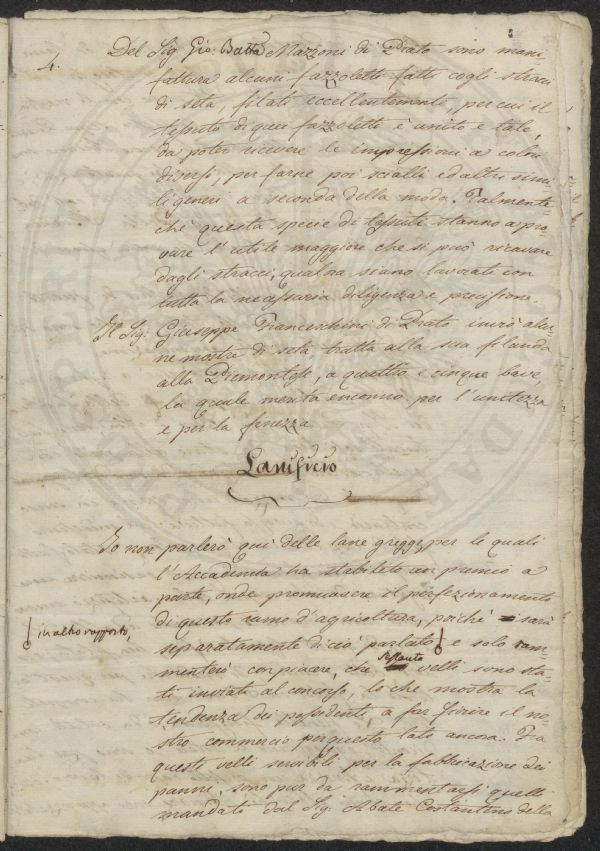 4.
Del Sig. Gio: Batta Mazzoni di Prato sono mani-
fattura alcuni fazzoletti fatti cogli stracci
di seta, filati eccellentemente, per cui il
tessuto di quei fazzoletti è unito e tale,
da poter ricevere le impressioni a colori
diversi, per farne poi scialli ed altri simi-
li generi a seconda della moda. Talmente-
chè questa specie di tessuti stanno a pro
vare l'utile maggiore che si può ricavare
dagli stracci, qualora siano lavorati con
tutta la necessaria diligenza e precisione.
Il Sig. Giuseppe Franceschini di Prato inviò alcu-
ne mostre di seta tratta alla sua filanda
alla Piemontese, a quattro e cinque bave,
la quale merita encomio per l'unitezza
e per la finezza
Lanificio
Io non parlerò quì delle lane gregge, per le quali
l'Accademia ha stabilito un premio a
parte, onde promuovere il perfezionamento
di questo ramo d'agricoltura, poichè sarà
in altro rapporto,
separatamente di ciò parlato e solo ram-
menterò con piacere, che sessanta velli sono sta-
ti inviati al concorso, lo che mostra la
tendenza dei possidenti a far fiorire il no-
stro commercio per questo lato ancora. Fra
questi velli servibili per la fabbricazione dei
panni, sono pur da rammentarsi quelli
mandati dal Sig. Abate Costantino della